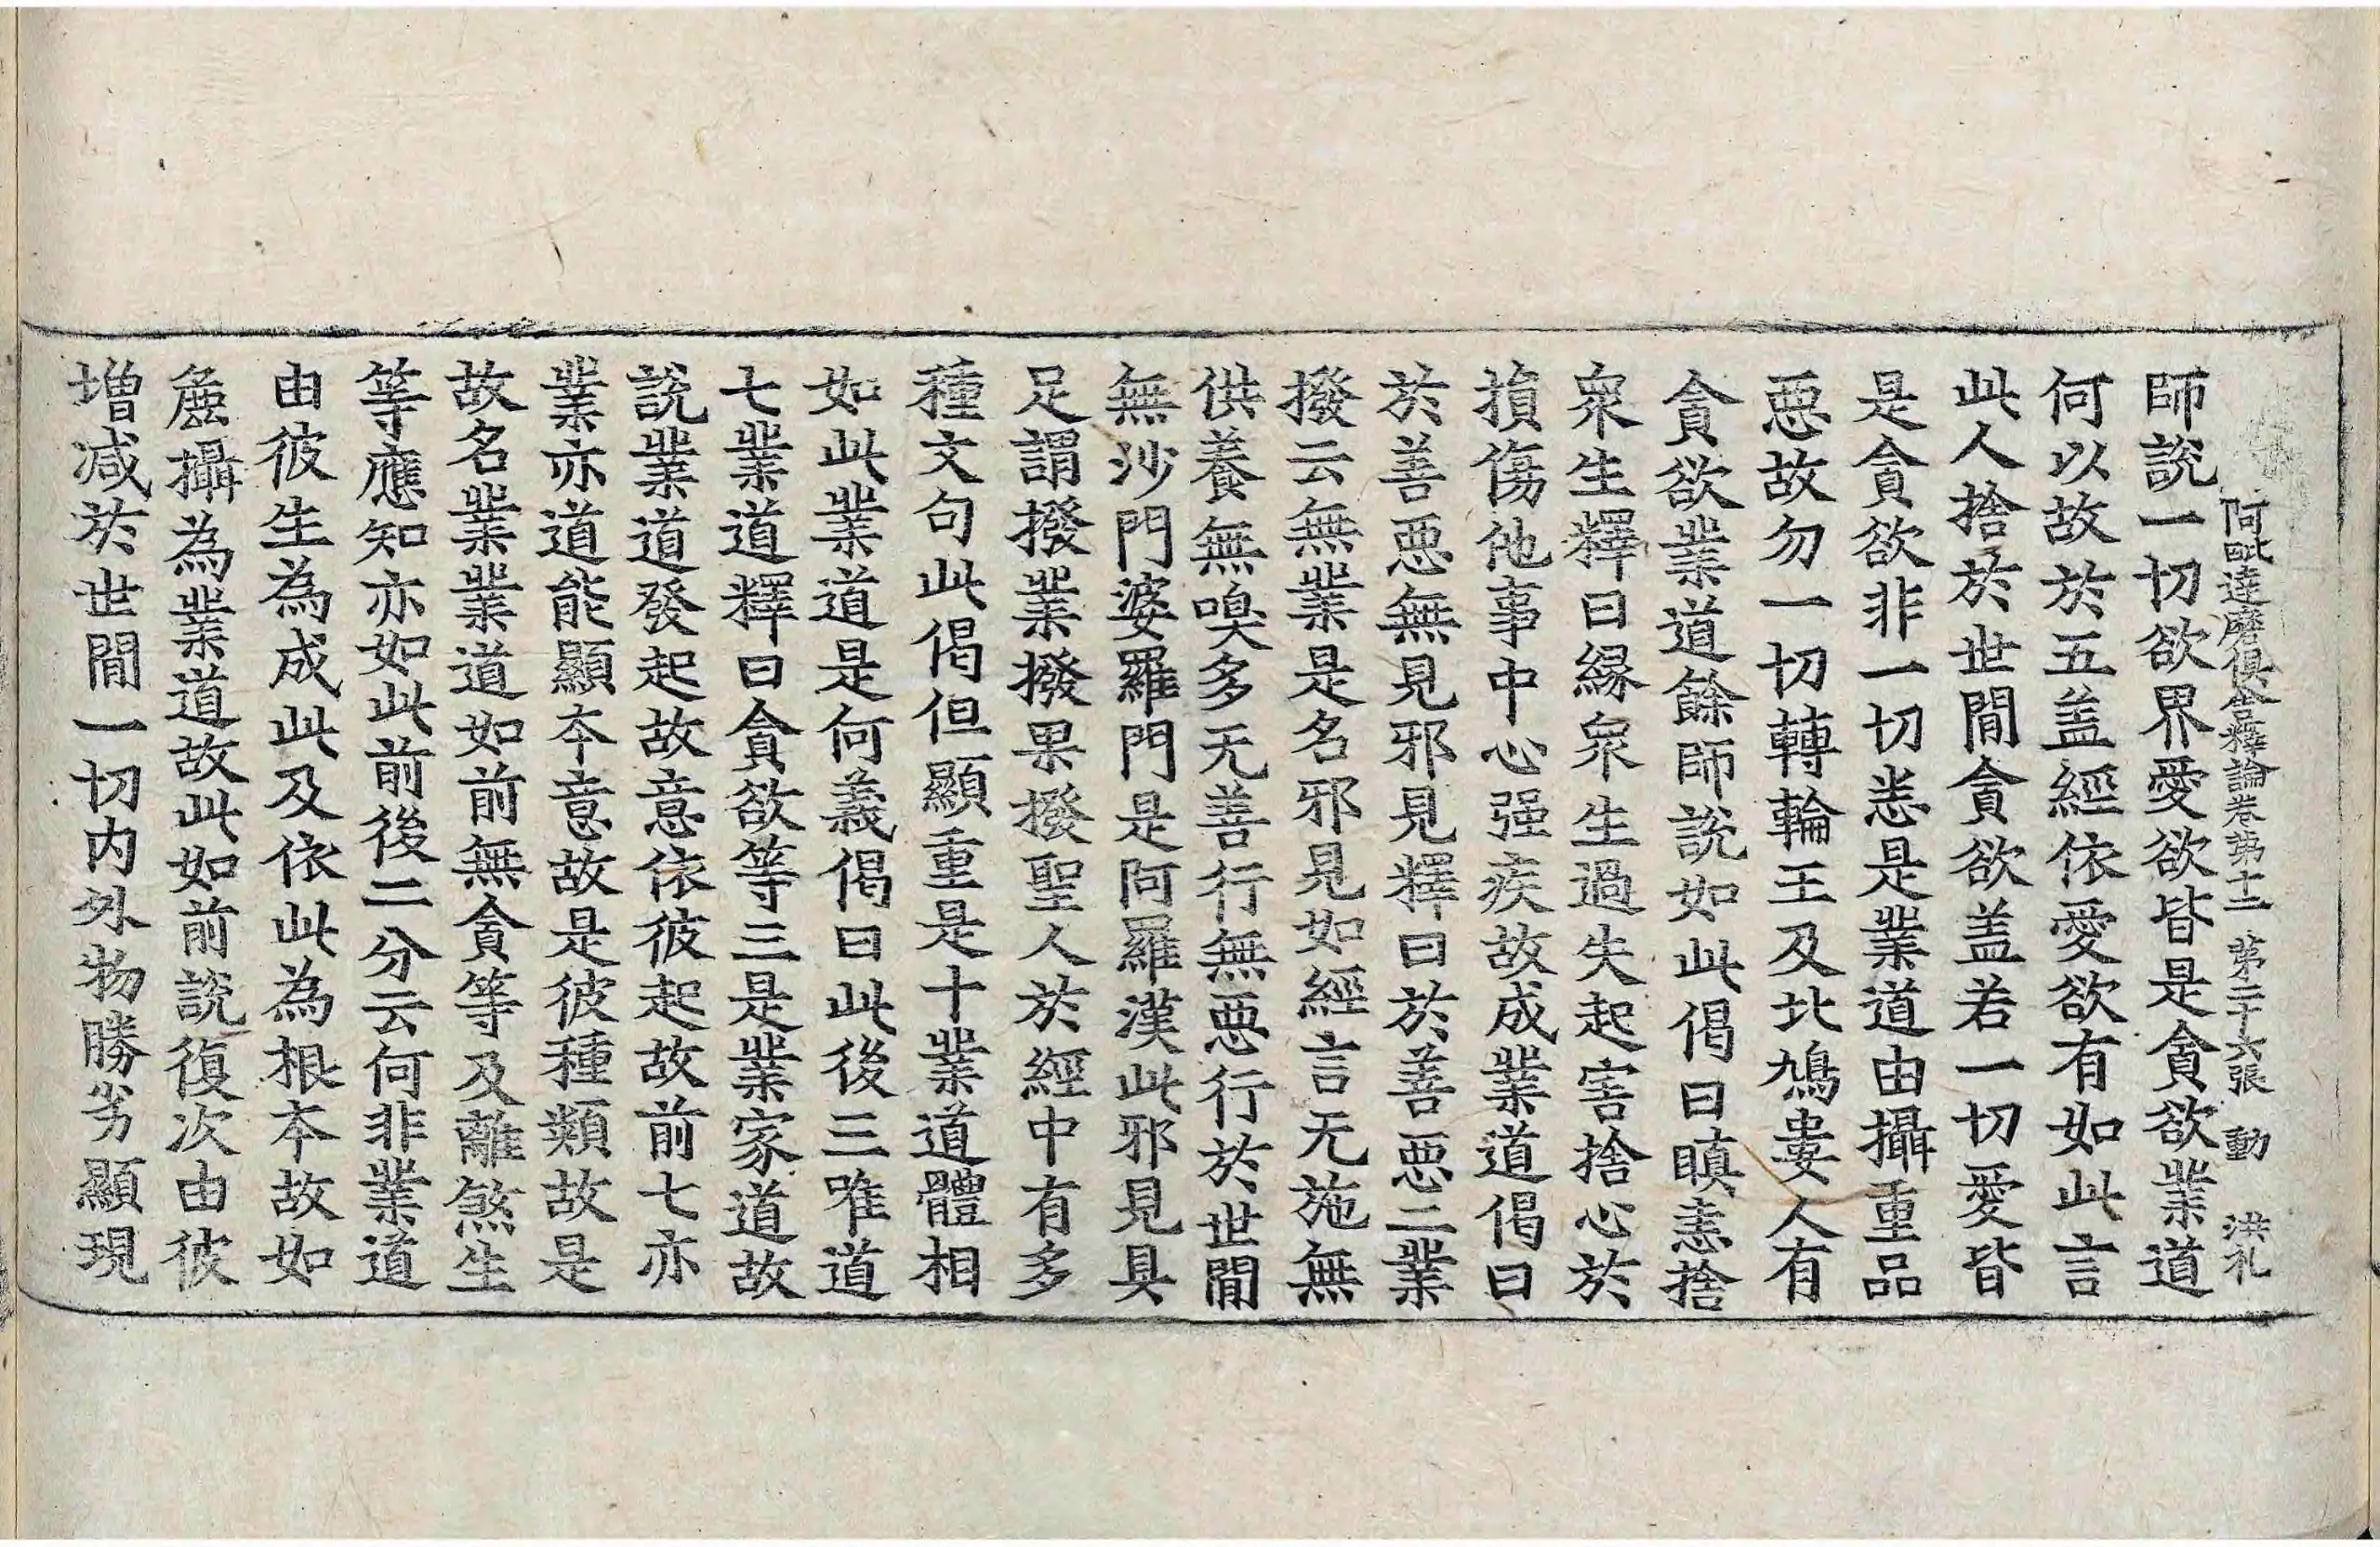 阿毗達磨俱舍釋論卷第十二 第二十六張 動 洪礼
師說一切欲界愛欲皆是貪欲業道
何以故於五盖經依愛欲有如此言
此人捨於世間貪欲盖若一切愛皆
是貪欲非一切恙是業道由攝重品
惡故勿一切轉輪王及北鳩婁人有
貪欲業道餘師說如此偈曰瞋恚捨
衆生釋曰緣衆生過失起害捨心於
損傷他事中心强疾故成業道偈曰
於善惡無見邪見釋曰於善惡二業
撥云無業是名邪見如經言无施無
供養無㗘多无善行無惡行於世間
無沙門婆羅門是阿羅漢此邪見具
足謂撥業撥果撥聖人於經中有多
種文句此偈但顯重是十業道體相
如此業道是何義偈曰此後三唯道
七業道釋曰貪欲等三是業家道故
說業道發起故意依彼起故前七亦
業亦道能顯本意故是彼種類故是
故名業業道如前無貪等及離煞生
等應知亦如此前後二分云何非業道
由彼生為成此及依此為根本故如
麁攝為業道故此如前說復次由彼
增减於世間一切内外物勝劣顯現